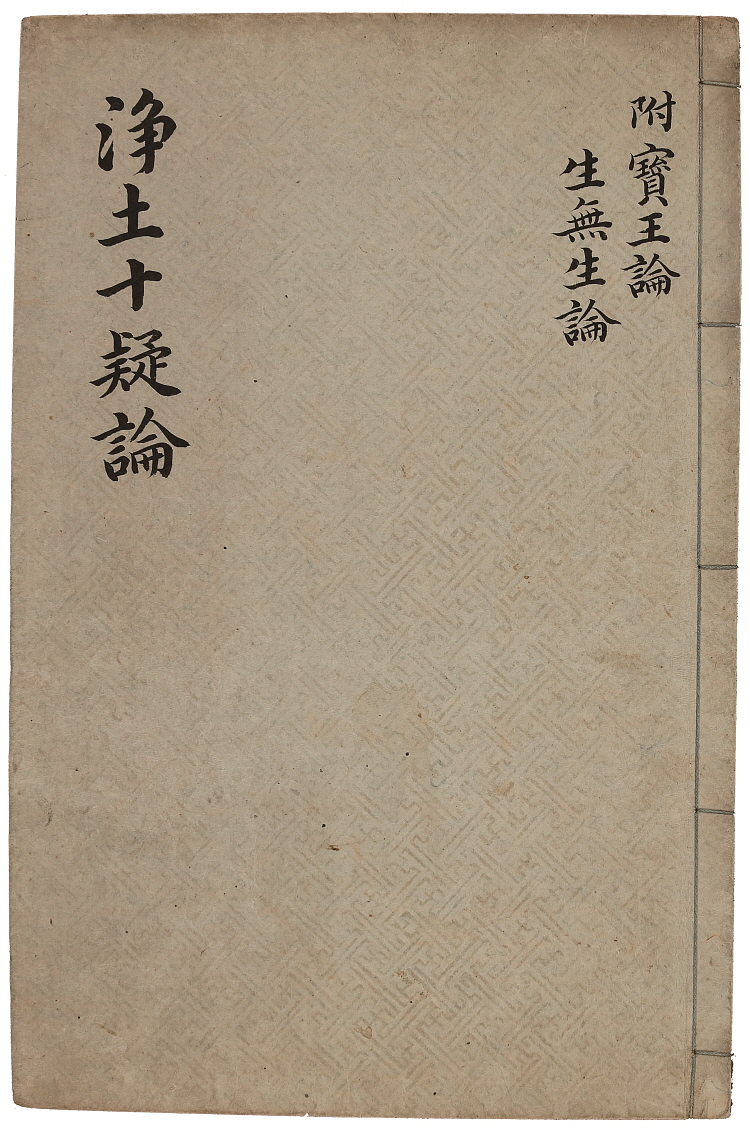 附寶王論
生無生論
浄土十疑論